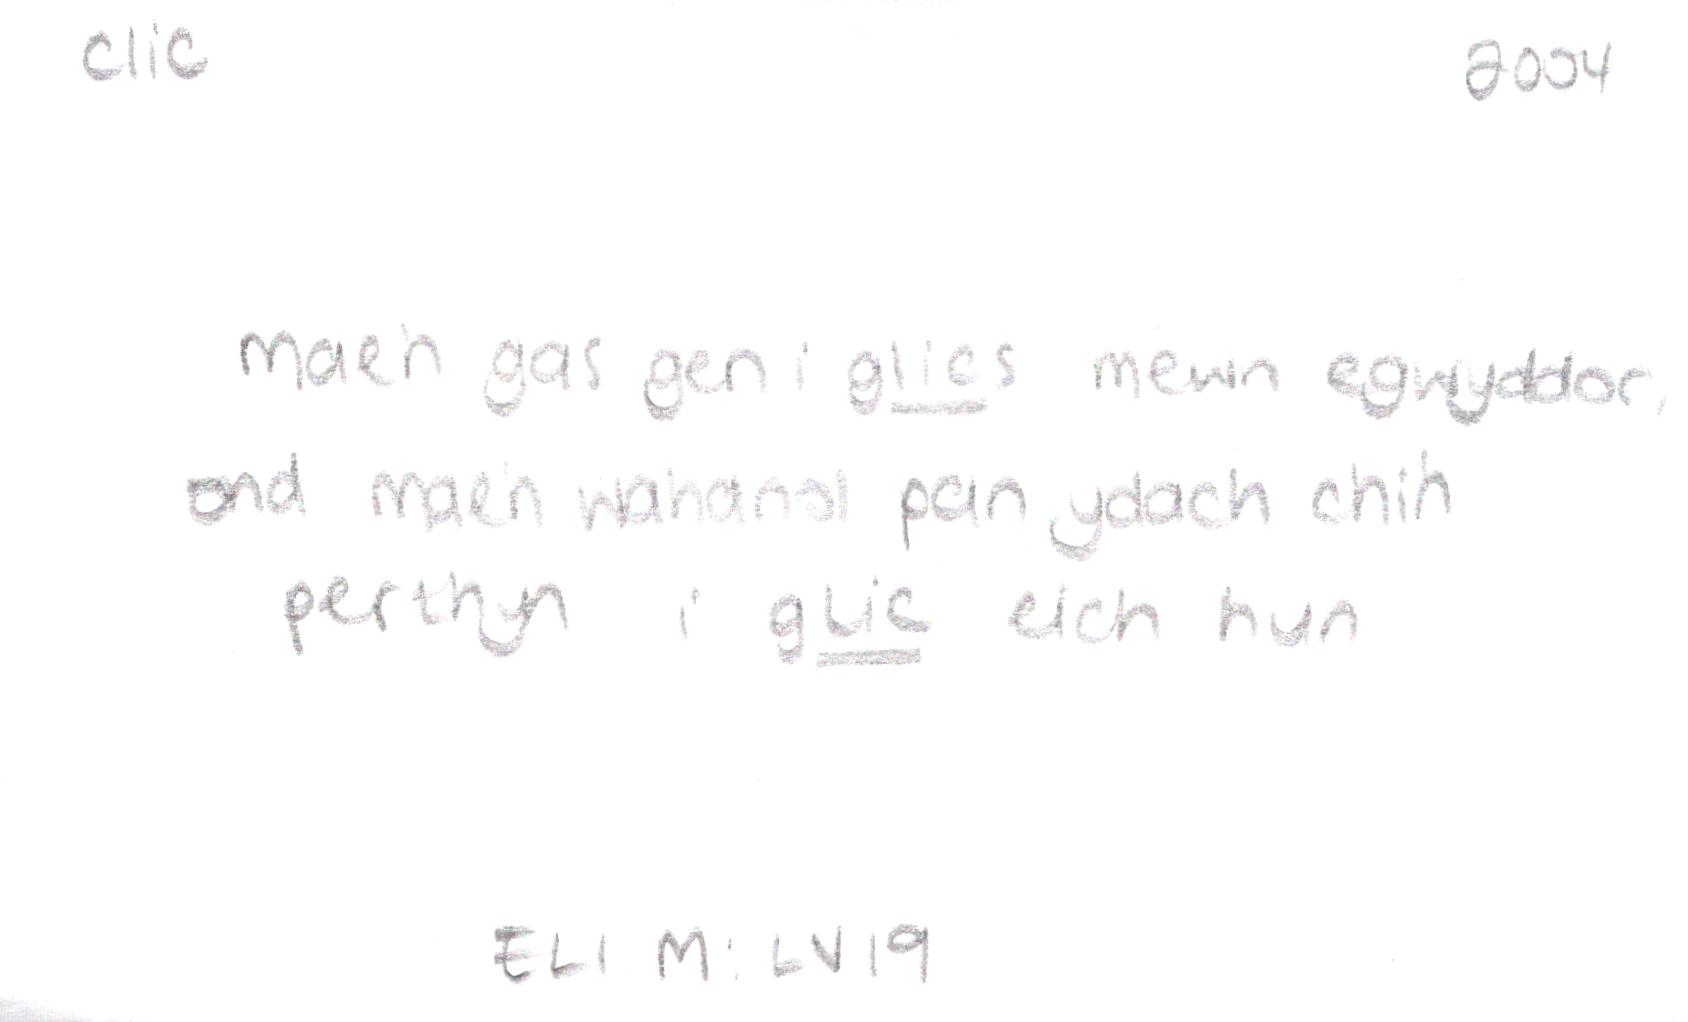 clic 2004
mae'n gas gen i glics mewn egwyddor,
ond mae'n wahanol pan ydach chi'n
perthyn i glic eich hun
ELI M: LV19